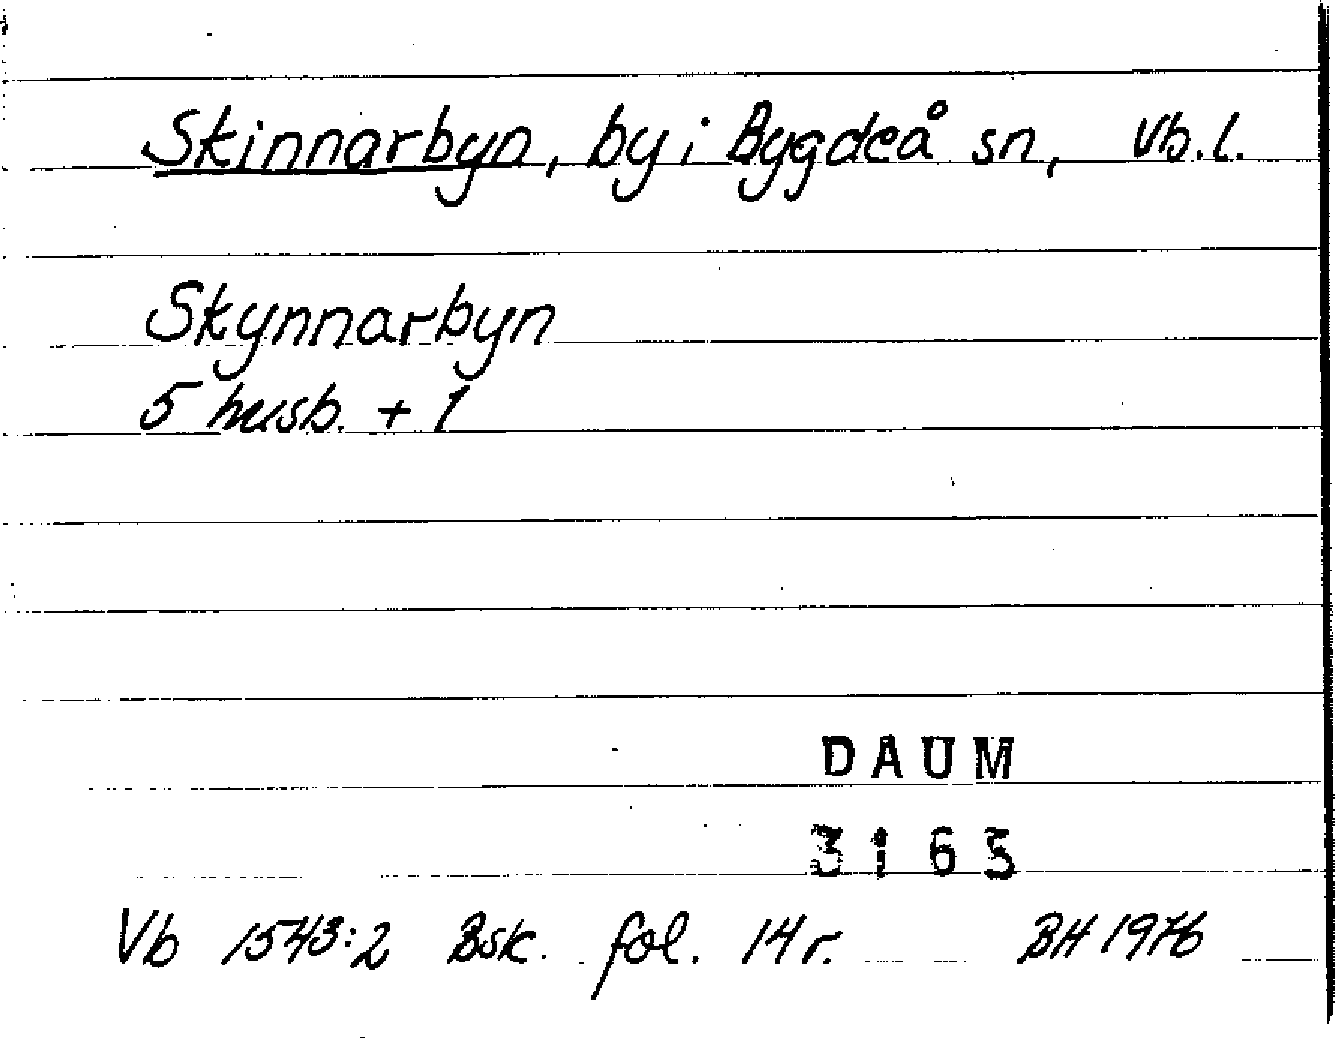 Skinnarbyn, by i Bygdeå sn, Vb.l.
Skynnarbyn
5 husb. + 1
DAUM
3163
Vb 1543:2 Bsk. fol. 14r. BH 1976